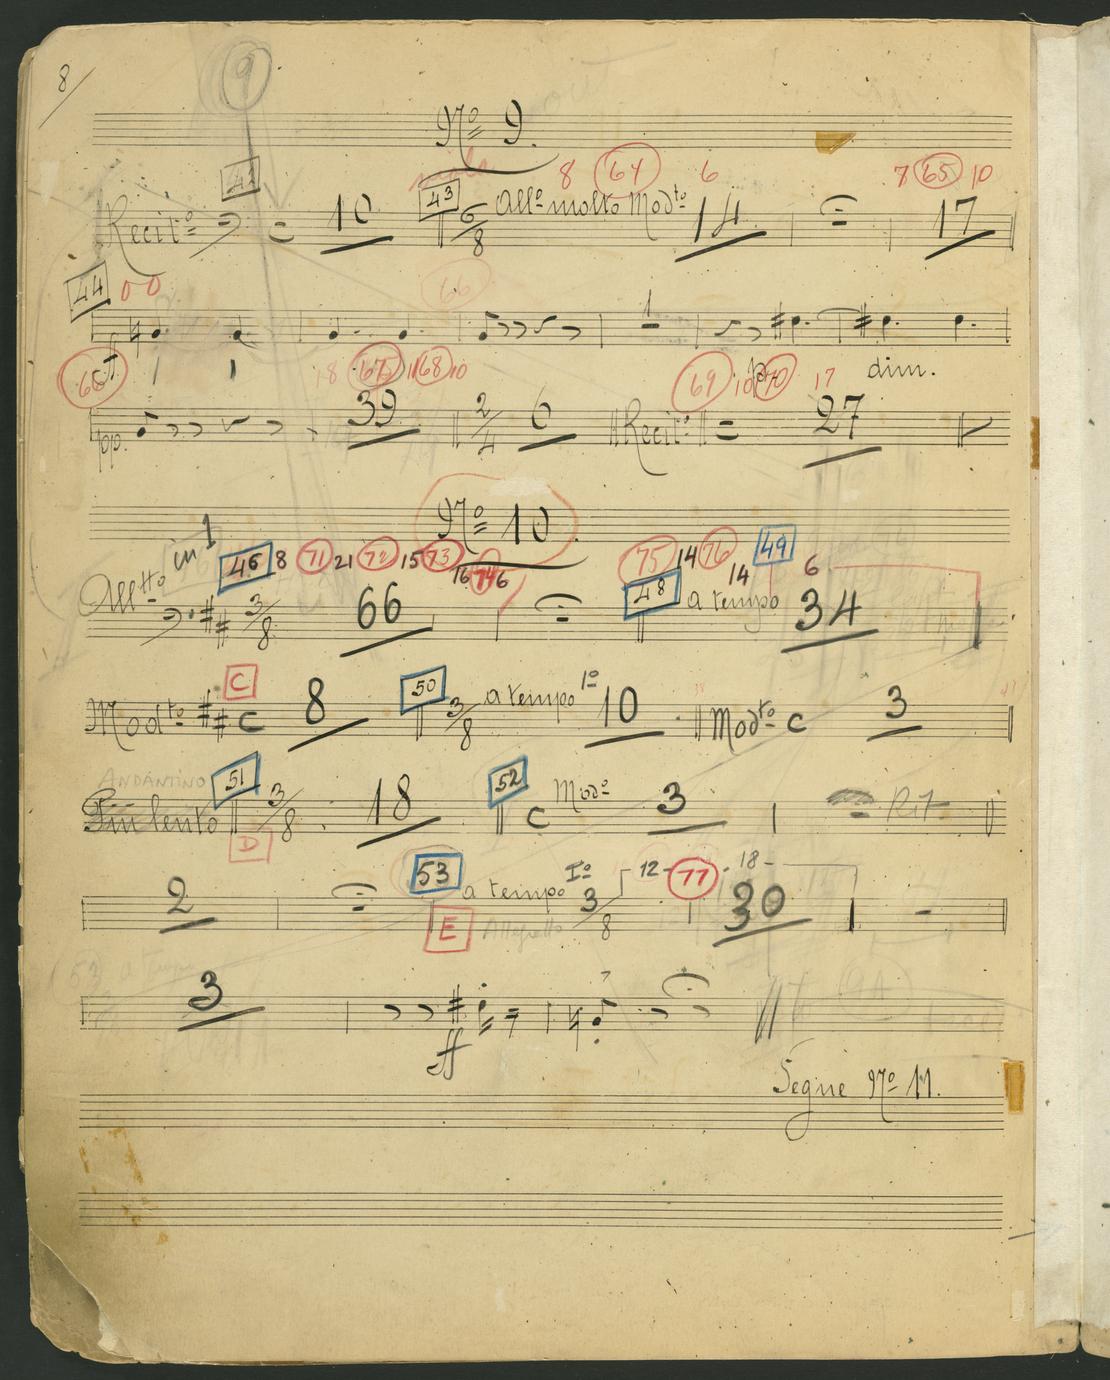 8
9
Nº 9.
43 8 64 6 7 65 10
Recit.º 10 6/8 All.º molto Mod.to 14 17
44 66
1
66 18 67 11 68 10 p 69 10 70 17 dim.
pp. 39 2/4 6 Recit.º 27
Nº 10
in 1 46 8 71 21 72 15 73 16 74 6 75 14 76 14 49 6
All.tto 3/8 66 48 a tempo 34
C 50
Mod.to C 8 3/8 a tempo Iº 10 Mod.to C 3
ANDANTINO 51 52
Piu lento 3/8 18 C Modº 3 Rit
D
53 12 77 18
2 a tempo Iº 3/8 30
E Allegretto
53 a tempo
3
ff
Segue Nº 11.